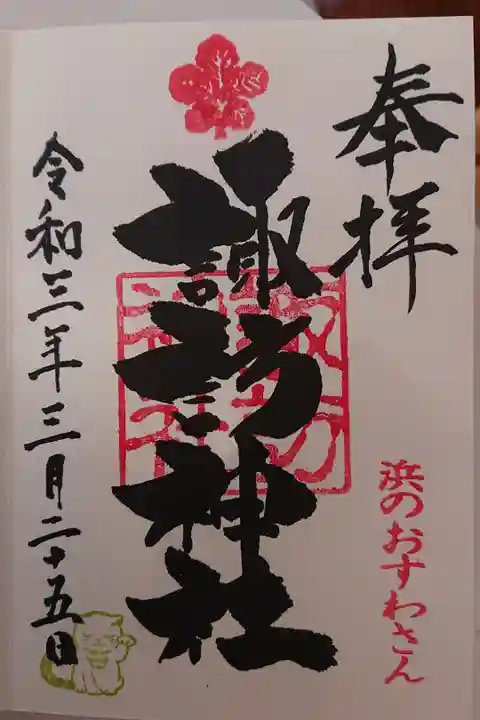 奉拝
諏訪神社
諏訪神社
浜のおすわさん
令和三年三月二十五日